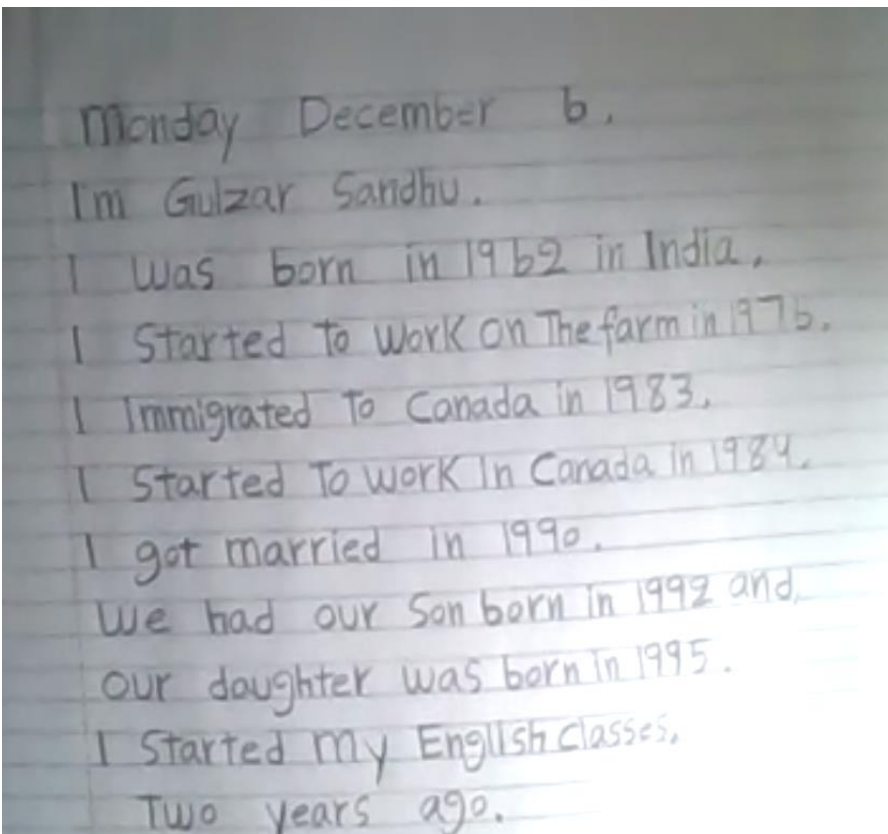 Monday December 6.
I'm Gulzar Sandhu.
I was born in 1962 in India.
I Started To work on The farm in 1976.
I Immigrated To Canada in 1983.
I Started To work In Canada in 1984.
I got married in 1990.
We had our Son born in 1992 and
our daughter was born in 1995.
I Started my English classes.
Two years ago.